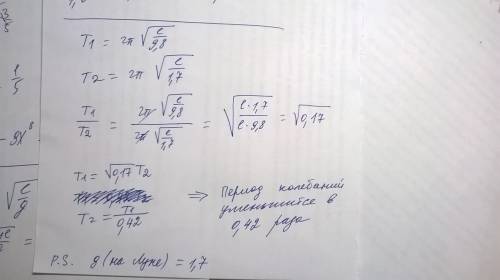 T1 = 2π √(l/9,8)
T2 = 2π √(l/1,7)
T1/T2 = 2π √(l/9,8) / 2π √(l/1,7) = √(l·1,7/l·9,8) = √0,17
T1 = √0,17 T2
T2 = T1/0,42
⇒ Период колебаний
уменьшится в
0,42 раза
P.S. g (на Луне) = 1,7
√(l/g)